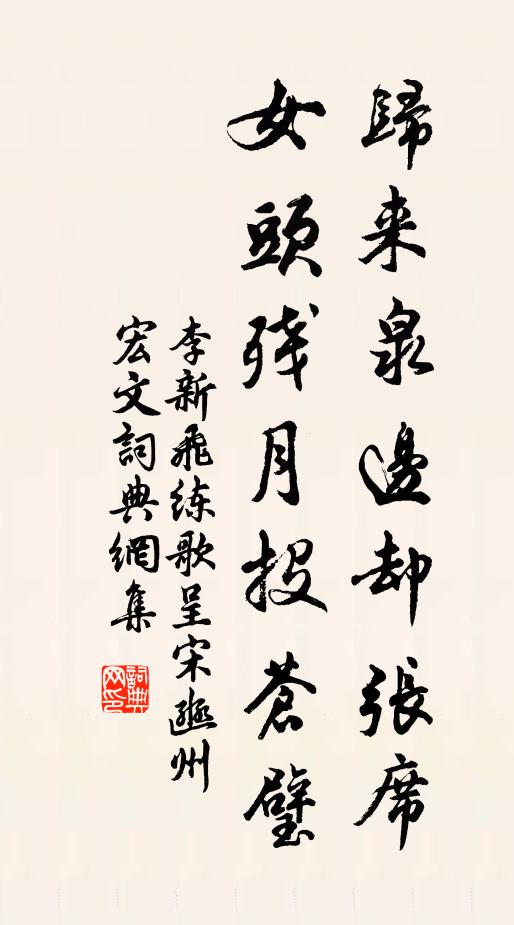 歸来泉邊却張席
女頭残月投蒼璧
李新飛練歌呈宋遂州
宏文詞典網集
詞典網印